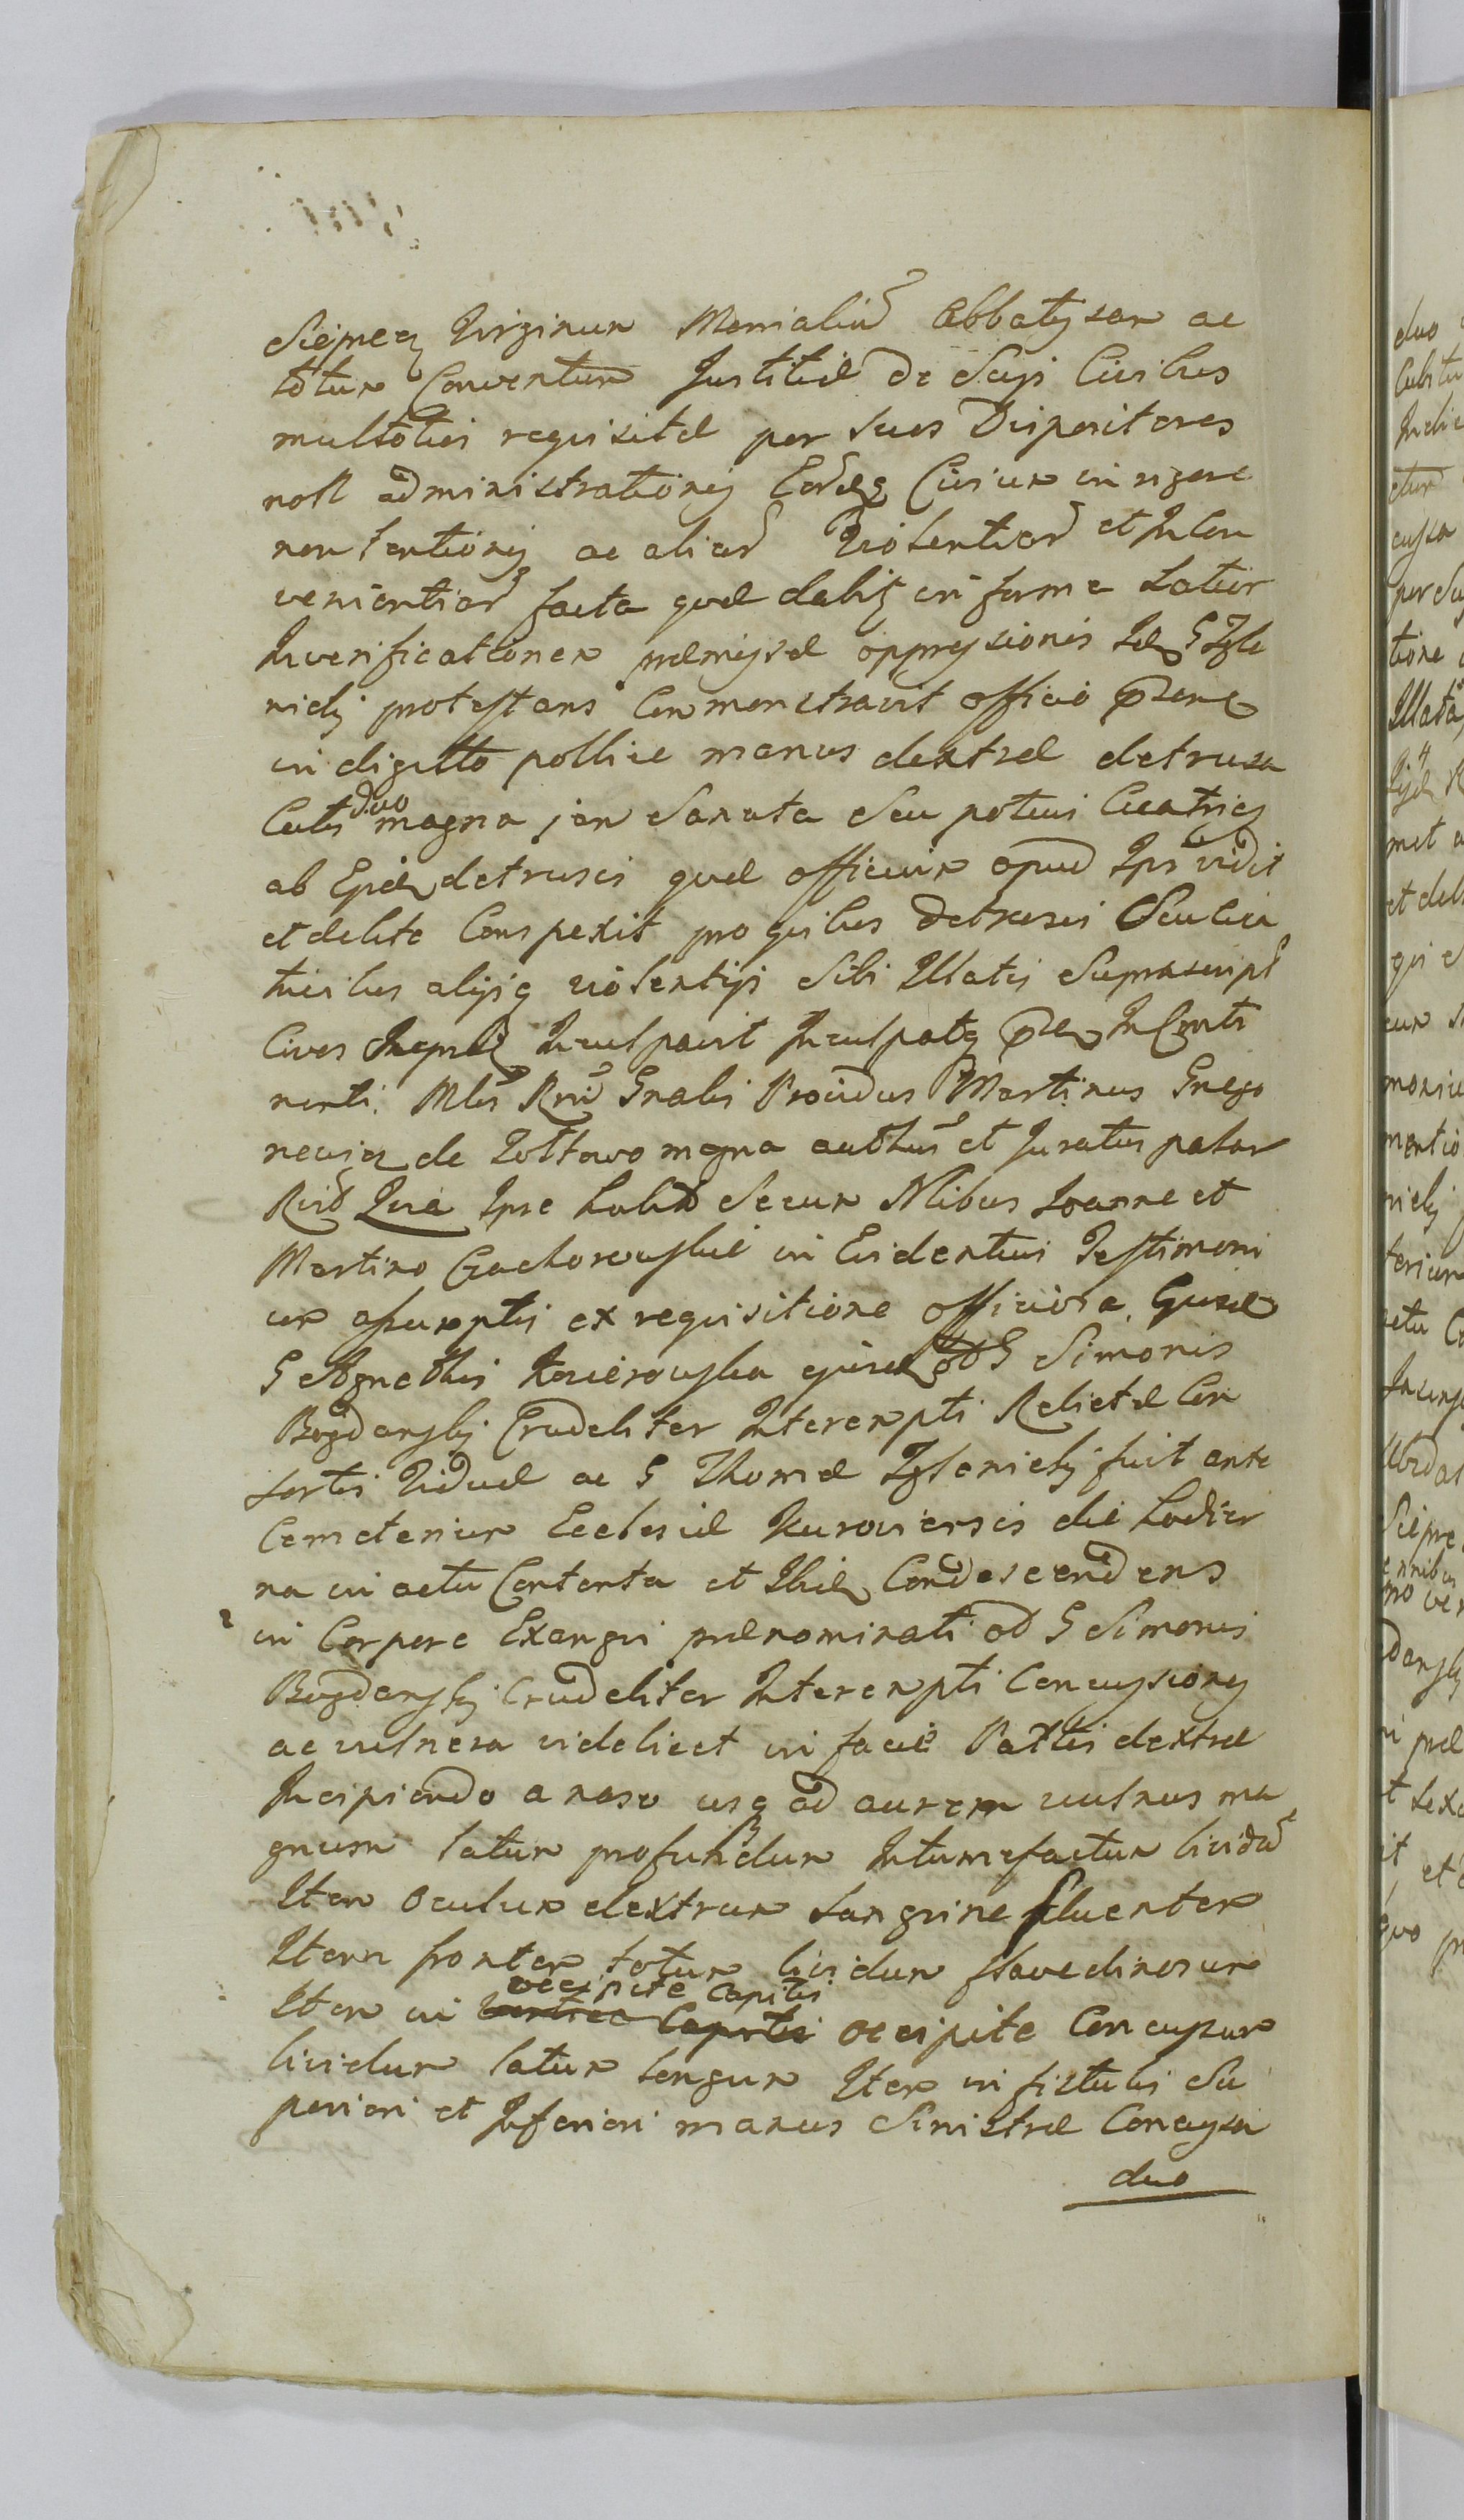 Sieprcen Virginum Monialium Abbatissam ac
totum Conventum Justitiæ de Suis Civibus
multoties requisitæ per Suos Dispositores
non administrationis Civium in rigore
non tentionis ac aliar Violentiar et Incon
venientiar facta quæ debitis in forma Latior
In verificationem præmissæ oppressionis G Izbi
nicki protestans Commonstravit officio præne
in digitto pollice manus dextræ detrusa
Cutis duo magna jam Sanata Seu potius Cicatrices
ab detrusis quæ officium apud Ipsum vidit
et debite Conspexit pro quibus detrusis Seu Cica
tricibus alijsq violentijs Sibi Illatis Suprascript
Cives Inculpavit Inculpatq In Conti
nenti Mlis Rni Gnalis Providus Martinus Grego
rewicz de Zottowo magna authus et Juratus palam
Quia Ipse habitis Secum Nlibus Joanne et
Martino Czachorowskie in Evidentius Testimoni
um assumptis ex requisitione officiosa Gnsæ
G Agnethis ejusdem od G Simonis
Bogdansky Crudeliter Interempti Relictæ Con
sortis Viduæ ac G Thomæ fuit ante
Cemeterium Ecclesiæ Kuroviensis die hodier
na in actu Contenta et Ibid Condescendens
in Corpore Exangvi prænominati od G Simonis
Bogdansky Crudeliter Interempti Concussiones
ac vulnera videlicet in facie Partis dextræ
Incipiendo a naso usq ad aurem vulnus ma
gnum latum profundum Intumefactum lividu
Item Oculum dextrum Sangvine fluentem
Item frontem totum lividum flavedinosum
Item in occipite Capitis occipite Concussum
lividum latum longum Item in fistulis Su
periori et Inferiori manus Sinistræ Concussa
duo